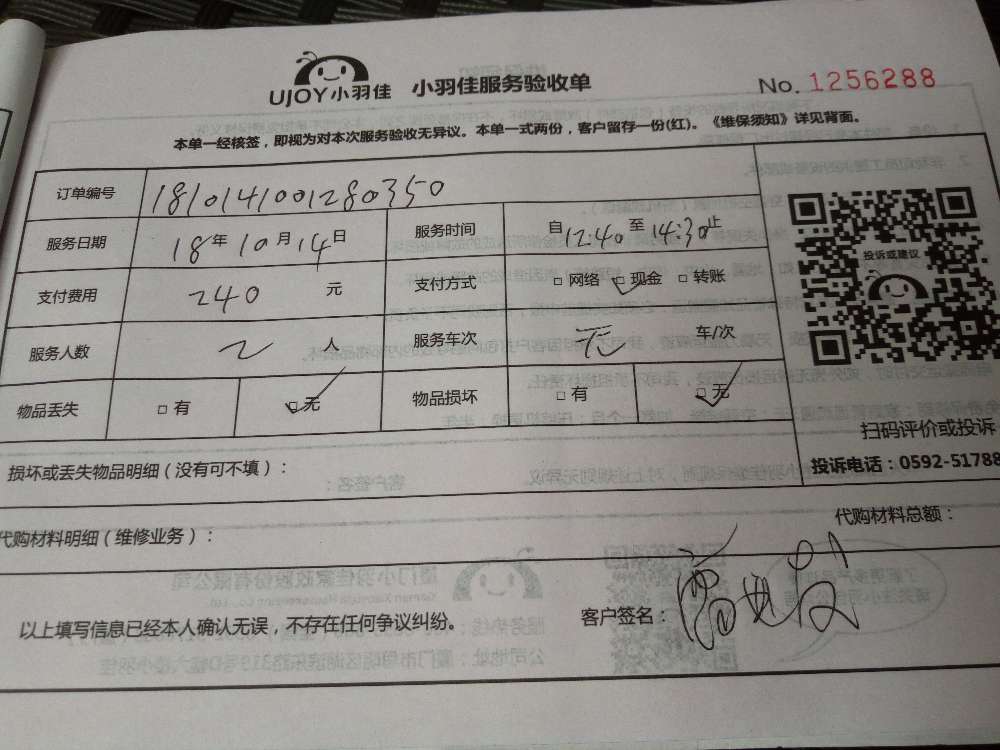 UJOY小羽佳 小羽佳服务验收单 No. 1256288
本单一经核签，即视为对本次服务验收无异议。本单一式两份，客户留存一份(红)。《维保须知》详见背面。
订单编号 1810141001280350
服务日期 18年10月14日 服务时间 自12:40至14:30止
投诉或建议
支付费用 240 元 支付方式 □ 网络 ☑ 现金 □ 转账
服务人数 2 人 服务车次 无 车/次
物品丢失 □ 有 ☑ 无 物品损坏 □ 有 ☑ 无
扫码评价或投诉
损坏或丢失物品明细（没有可不填）： 投诉电话：0592-51788
代购材料明细（维修业务）： 代购材料总额：
以上填写信息已经本人确认无误，不存在任何争议纠纷。 客户签名：